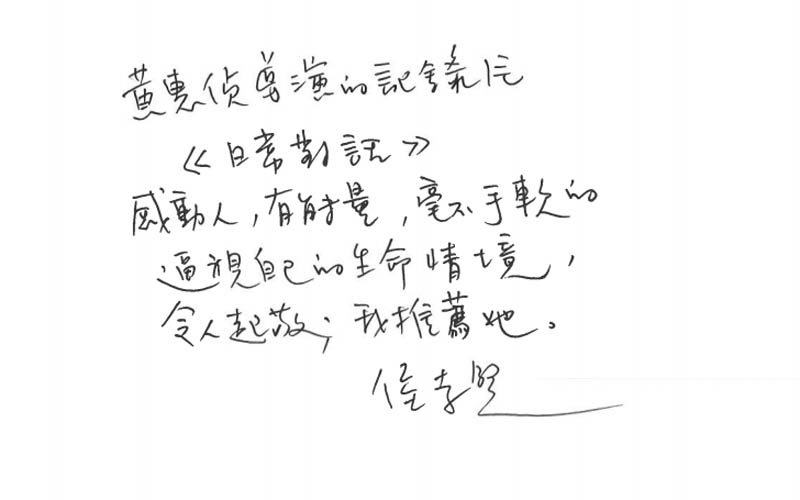 黃惠偵導演的記錄片
《日常對話》
感動人,有能量,毫不手軟的
逼視自己的生命情境,
令人起敬;我推薦她。
侯孝賢